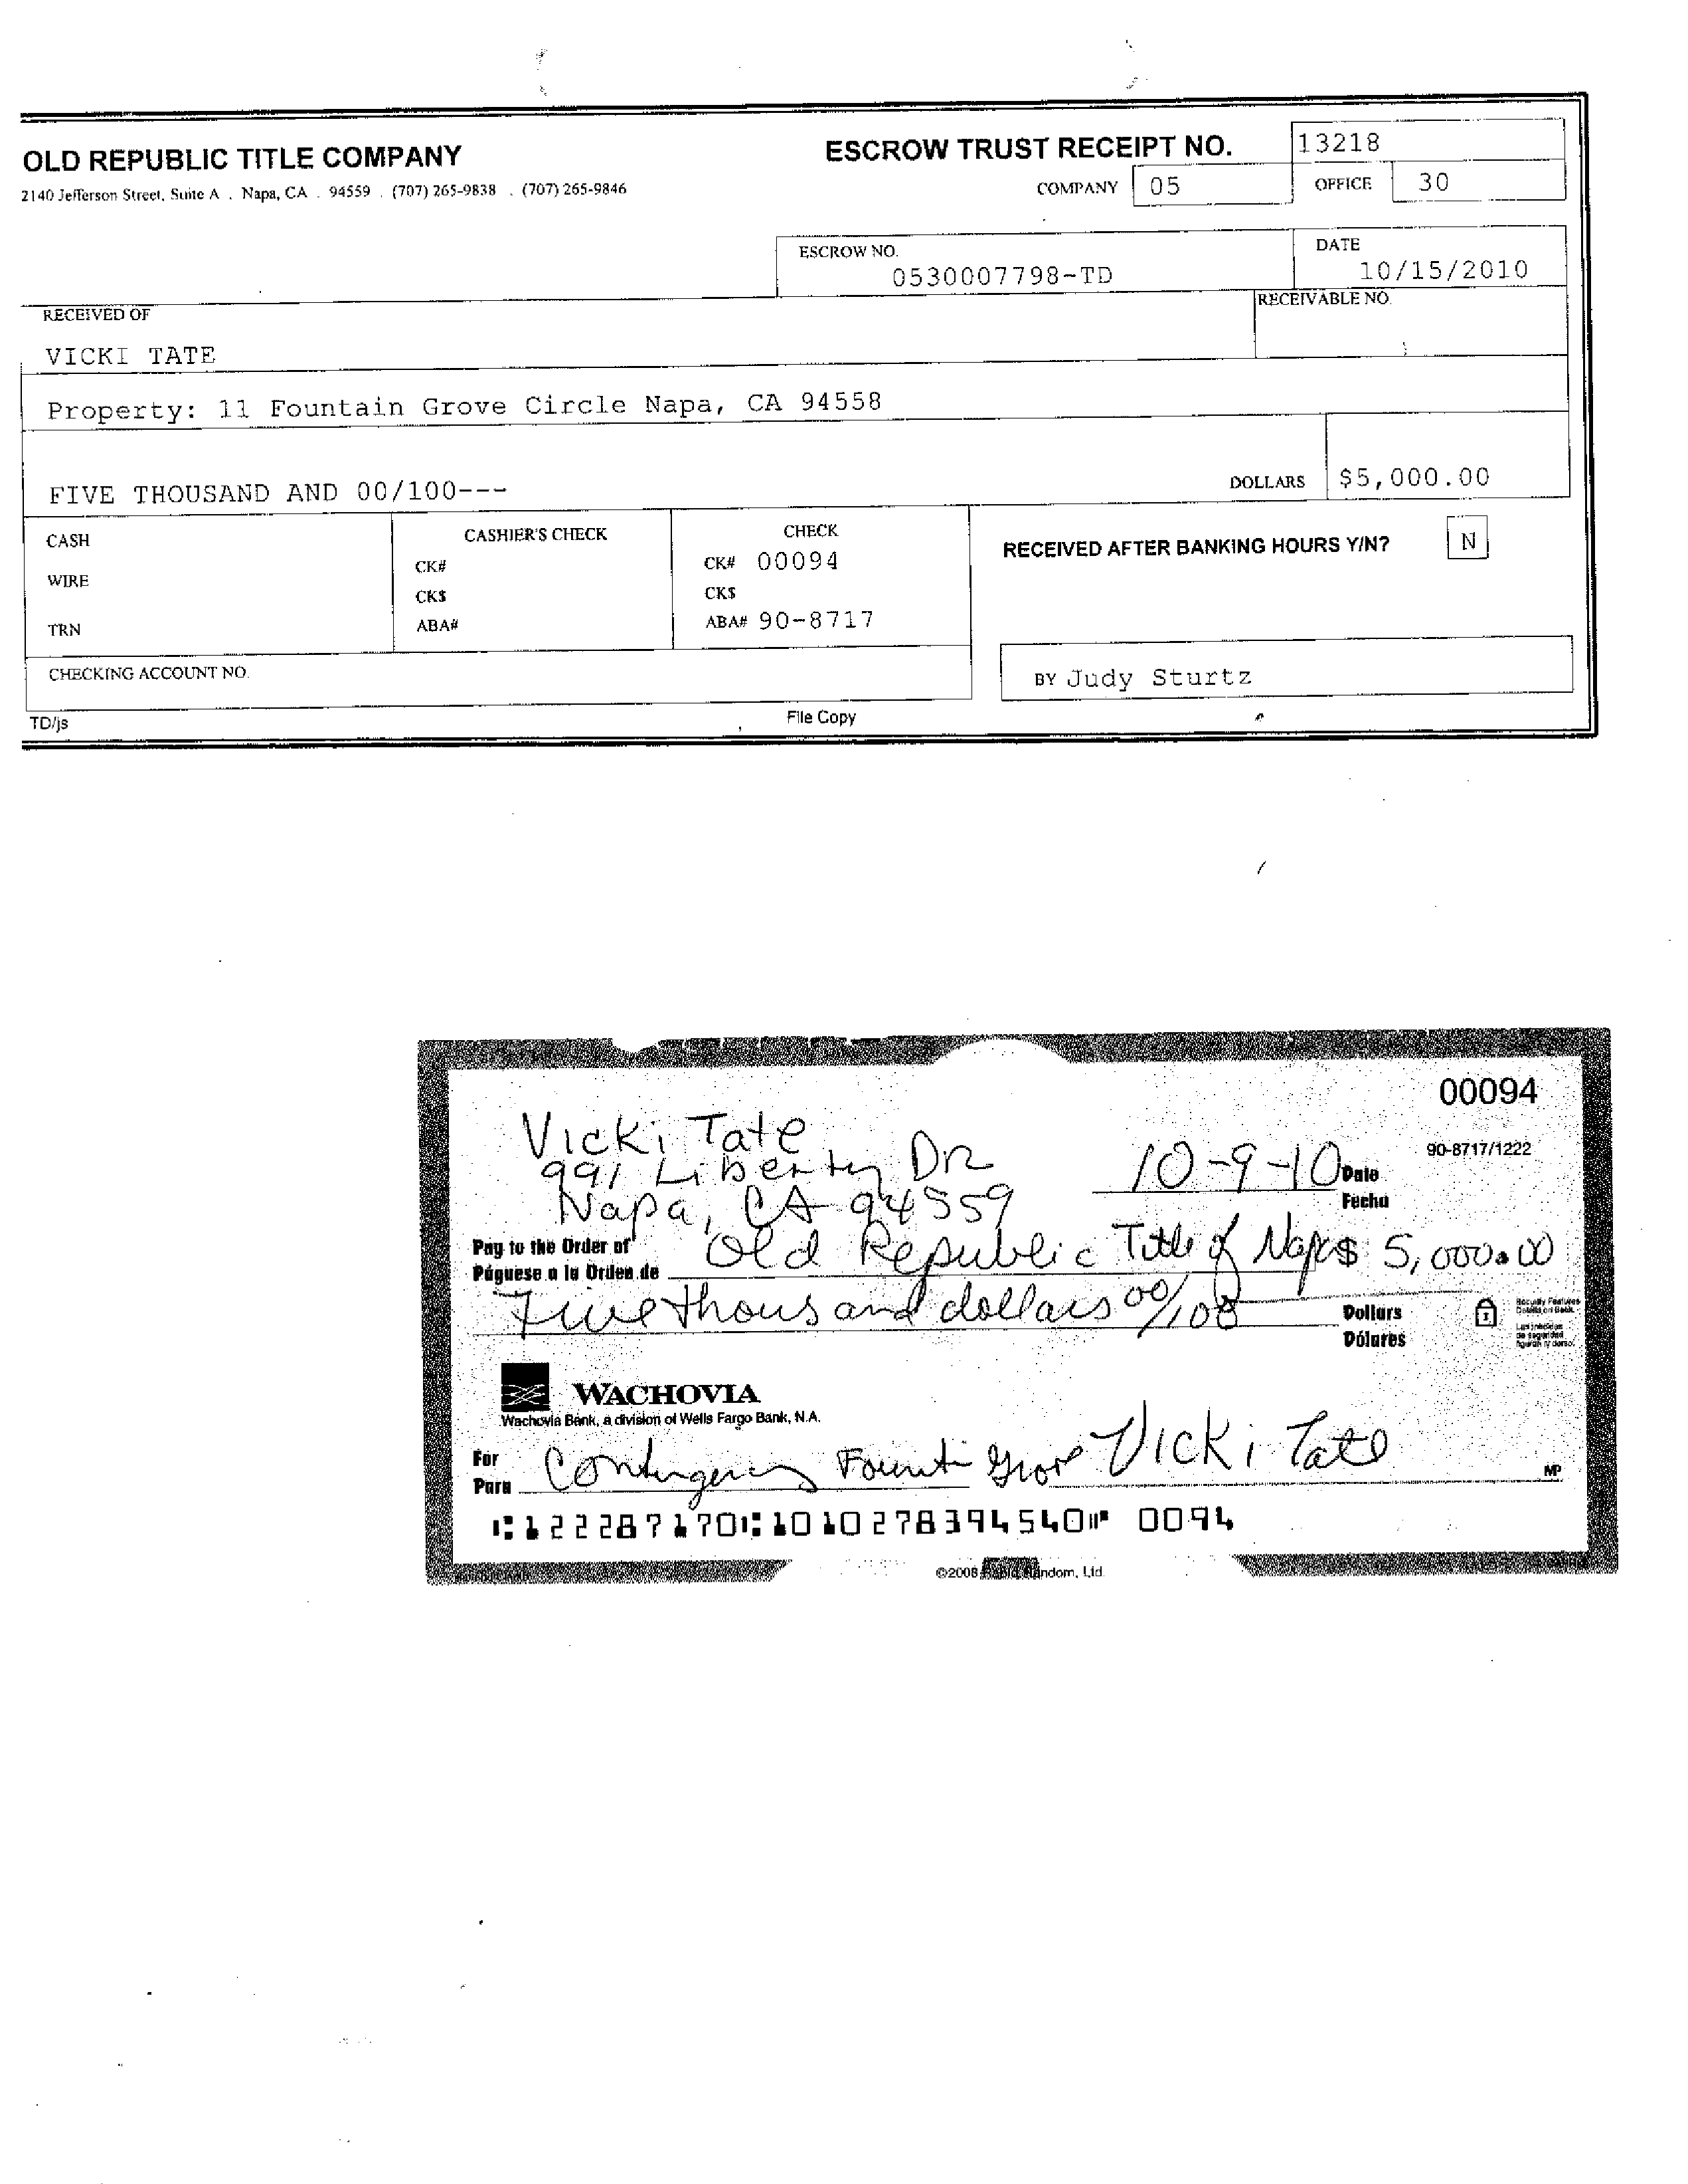 OLD REPUBLIC TITLE COMPANY
2140 Jefferson Street, Suite A . Napa, CA . 94559 . (707) 265-9838 . (707) 265-9846
ESCROW TRUST RECEIPT NO. 13218
COMPANY 05 OFFICE 30
ESCROW NO. 0530007798-TD
DATE 10/15/2010
RECEIVED OF
RECEIVABLE NO.
VICKI TATE
Property: 11 Fountain Grove Circle Napa, CA 94558
FIVE THOUSAND AND 00/100--- DOLLARS $5,000.00
CASH
WIRE
TRN
CASHIER'S CHECK
CK#
CK$
ABA#
CHECK
CK# 00094
CK$
ABA# 90-8717
RECEIVED AFTER BANKING HOURS Y/N? N
CHECKING ACCOUNT NO.
BY Judy Sturtz
TD/js File Copy
00094
90-8717/1222
Vicki Tate
991 Liberty DR
Napa, CA 94559
10-9-10 Date
Fecha
Pay to the Order of
Páguese a la Orden de
Old Republic Title of Napa $ 5,000.00
Five thousand dollars 00/100 Dollars
Dólares
Security Features
Details on Back.
WACHOVIA
Wachovia Bank, a division of Wells Fargo Bank, N.A.
For
Para
Contingency Vicki Tate
MP
⑆122287170⑆1010278394540⑈ 0094
©2008 Ltd.